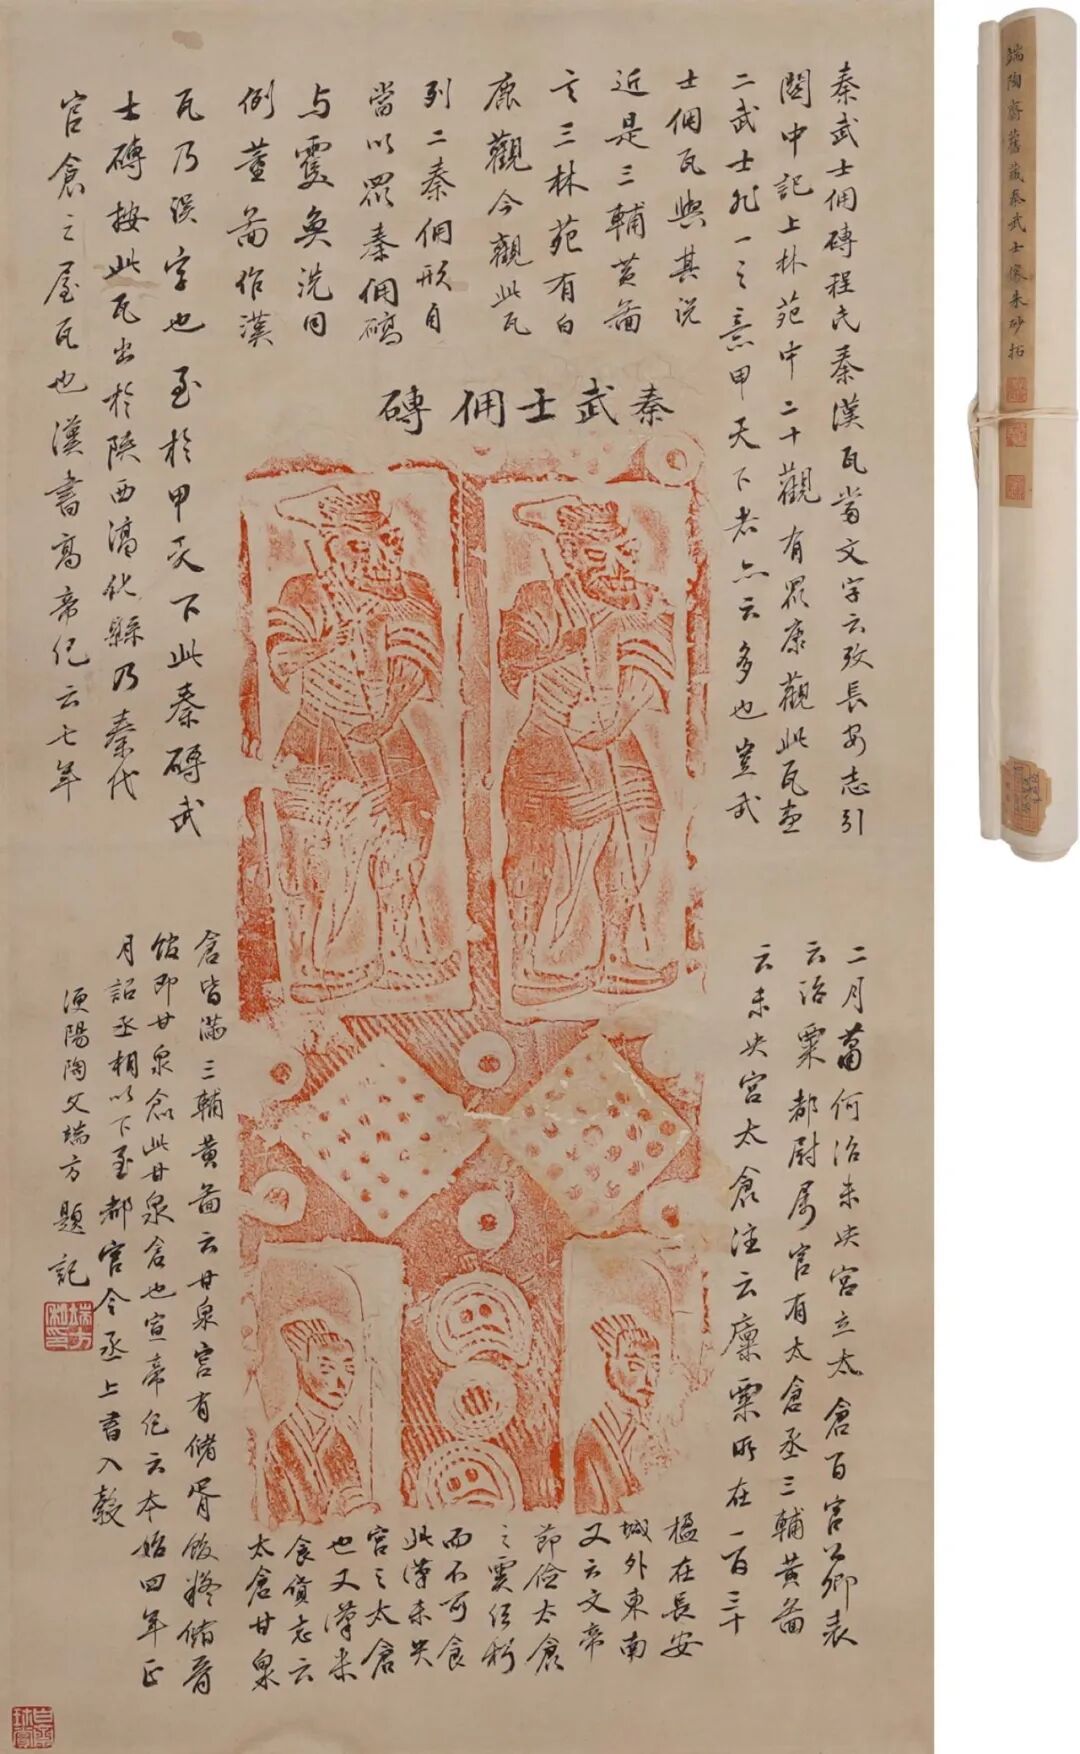 秦武士佣磚程氏秦漢瓦當文字云攷長安志引
關中記上林苑中二十觀有眾康觀此瓦畫
二武士非一之意甲天下者亦云多也豈武
士佣瓦與其説
近是三輔黃啚
言三林苑有白
鹿觀今觀此瓦
列二秦佣形自
當以眾秦佣碻
与奐洗同
例董啚作漢
瓦乃误字也至於甲天下此秦磚武
士磚按此瓦出於陝西淳化縣乃秦代
官倉之屋瓦也漢書高帝纪云七年
秦武士佣磚
二月萧何治未央宫立太倉百官公卿表
云治粟都尉属官有太倉丞三輔黄啚
云未央宫太倉注云廩粟所在一百三十
楹在長安
城外東南
又云文帝
節儉太倉
之粟紅朽
而不可食
此漢未央
宫之太倉
也又漢書
食貨志云
太倉甘泉
倉皆满三輔黄啚云甘泉宫有储胥储胥
馆即甘泉倉此甘泉倉也宣帝纪云本始四年正
月詔丞相以下至都官令丞上書入穀
浭陽陶父端方題記
端方私印
端陶齋舊藏秦武士像朱砂拓